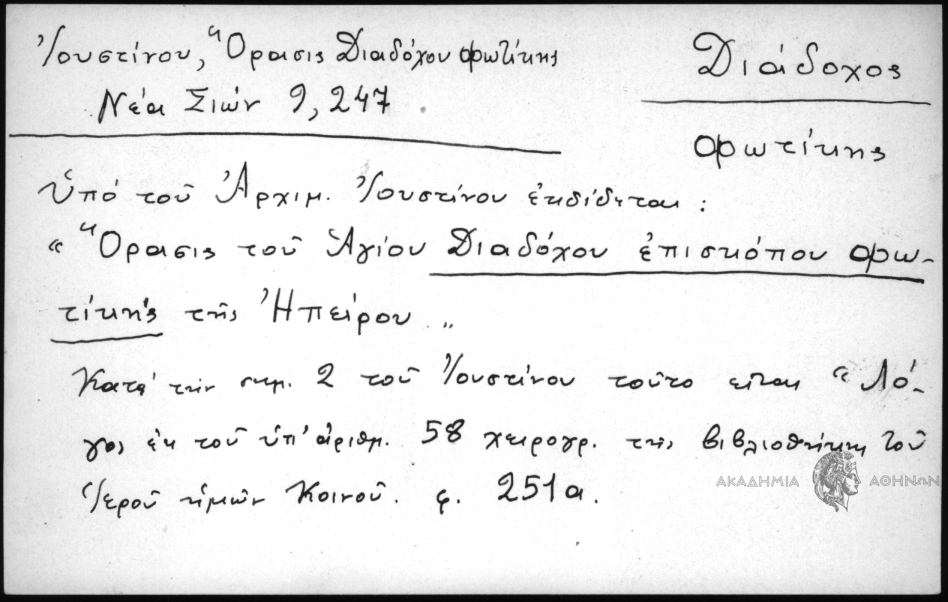 Ἰουστίνου, Ὅρασις Διαδόχου Φωτίκης
Νέα Σιών 9, 247
Διάδοχος
Φωτίκης
Ὑπό τοῦ Ἀρχιμ. Ἰουστίνου ἐκδίδεται :
“ Ὅρασις τοῦ Ἁγίου Διαδόχου ἐπισκόπου Φω-
τίκης τῆς Ἠπείρου „
Κατά τήν σημ. 2 τοῦ Ἰουστίνου τοῦτο εἶναι “ Λό-
γος ἐκ τοῦ ὑπ' ἀριθμ. 58 χειρογρ. τῆς βιβλιοθήκης τοῦ
Ἱεροῦ ἡμῶν Κοινοῦ. φ. 251α.
ΑΚΑΔΗΜΙΑ ΑΘΗΝΩΝ